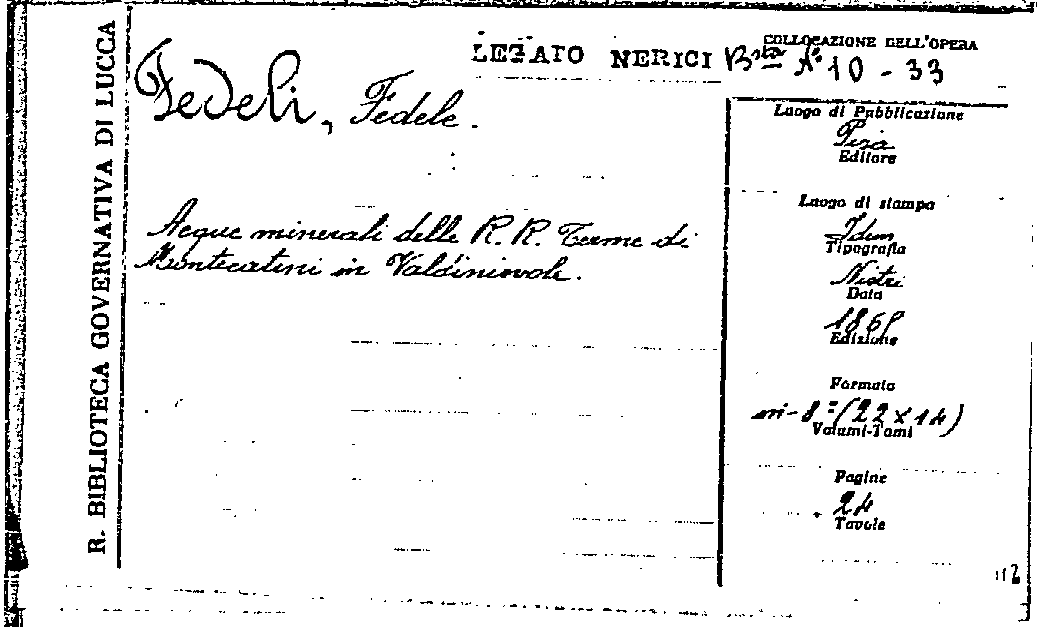 R. BIBLIOTECA GOVERNATIVA DI LUCCA
LEGATO NERICI
COLLOCAZIONE DELL'OPERA
Bsta N° 10 - 33
Fedeli, Fedele.
Acque minerali delle R. R. Terme di
Montecatini in Valdinievole.
Luogo di Pubblicazione
Pisa
Editore
Luogo di stampa
Idem
Tipografia
Nistri
Data
Edizione
Formato
in-8° (22 x 14)
Volumi-Tomi
Pagine
24
Tavole